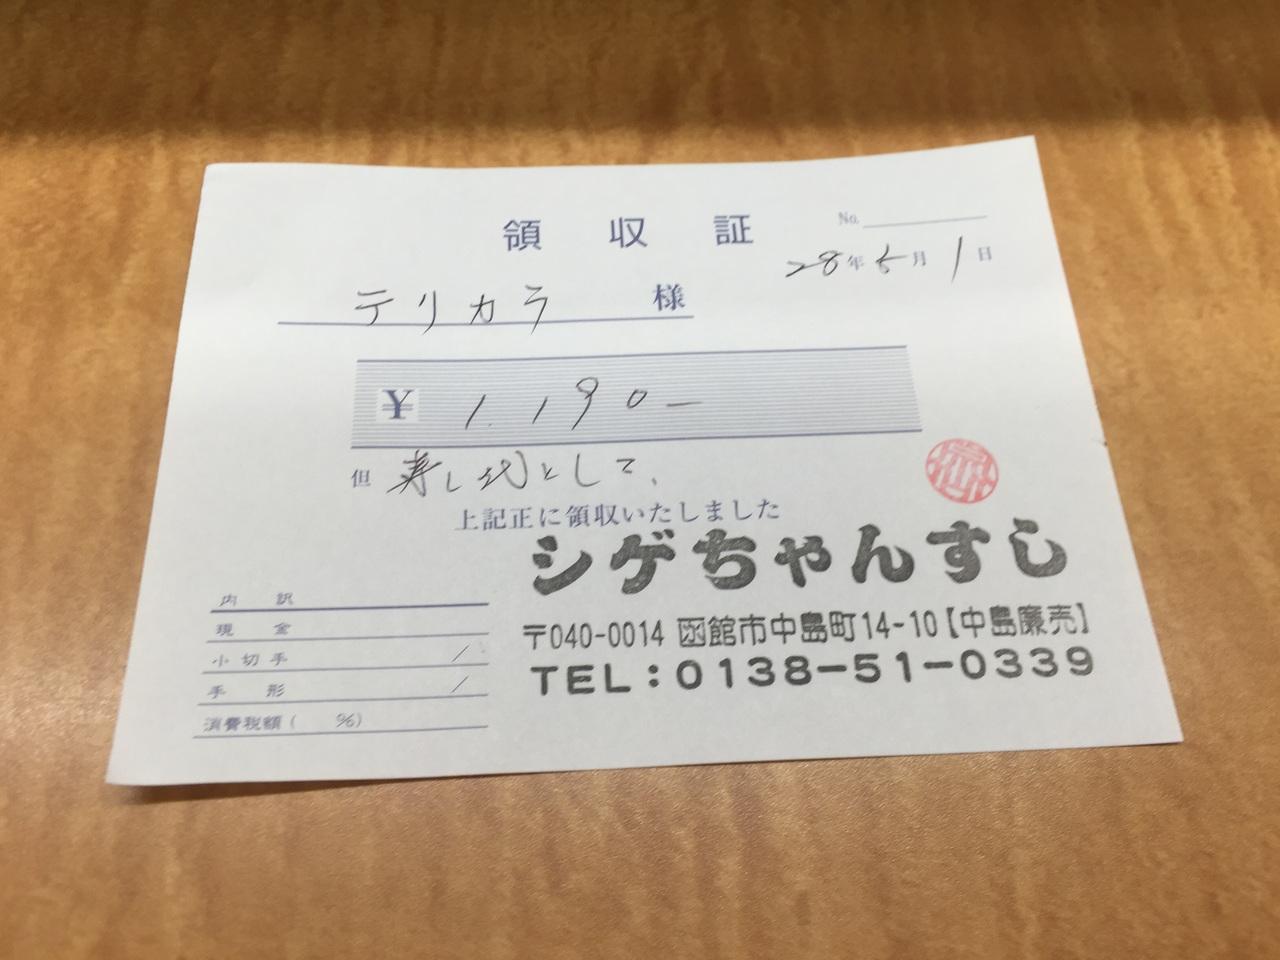 領収証
No.
28年5月1日
テリカラ 様
¥ 1,190-
但 寿し代として、
上記正に領収いたしました
シゲちゃんすし
〒040-0014 函館市中島町14-10【中島廉売】
TEL:0138-51-0339
内訳
現金
小切手 /
手形 /
消費税額( %)